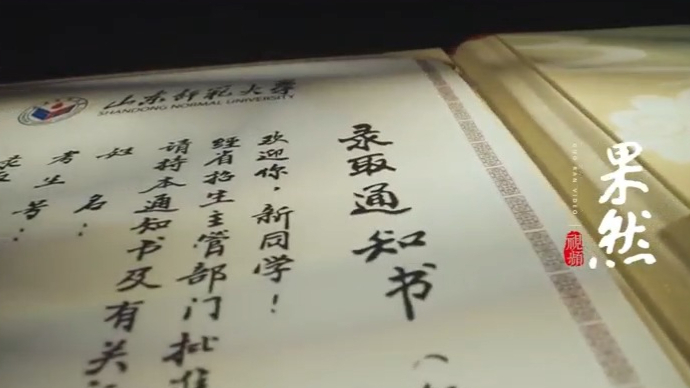 山东师范大学
SHANDONG NORMAL UNIVERSITY
录取通知书
欢迎你，新同学！
经省招生主管部门批准
请持本通知书及有关
姓名：
考生号：
果然
GUO RAN VIDIO
視頻